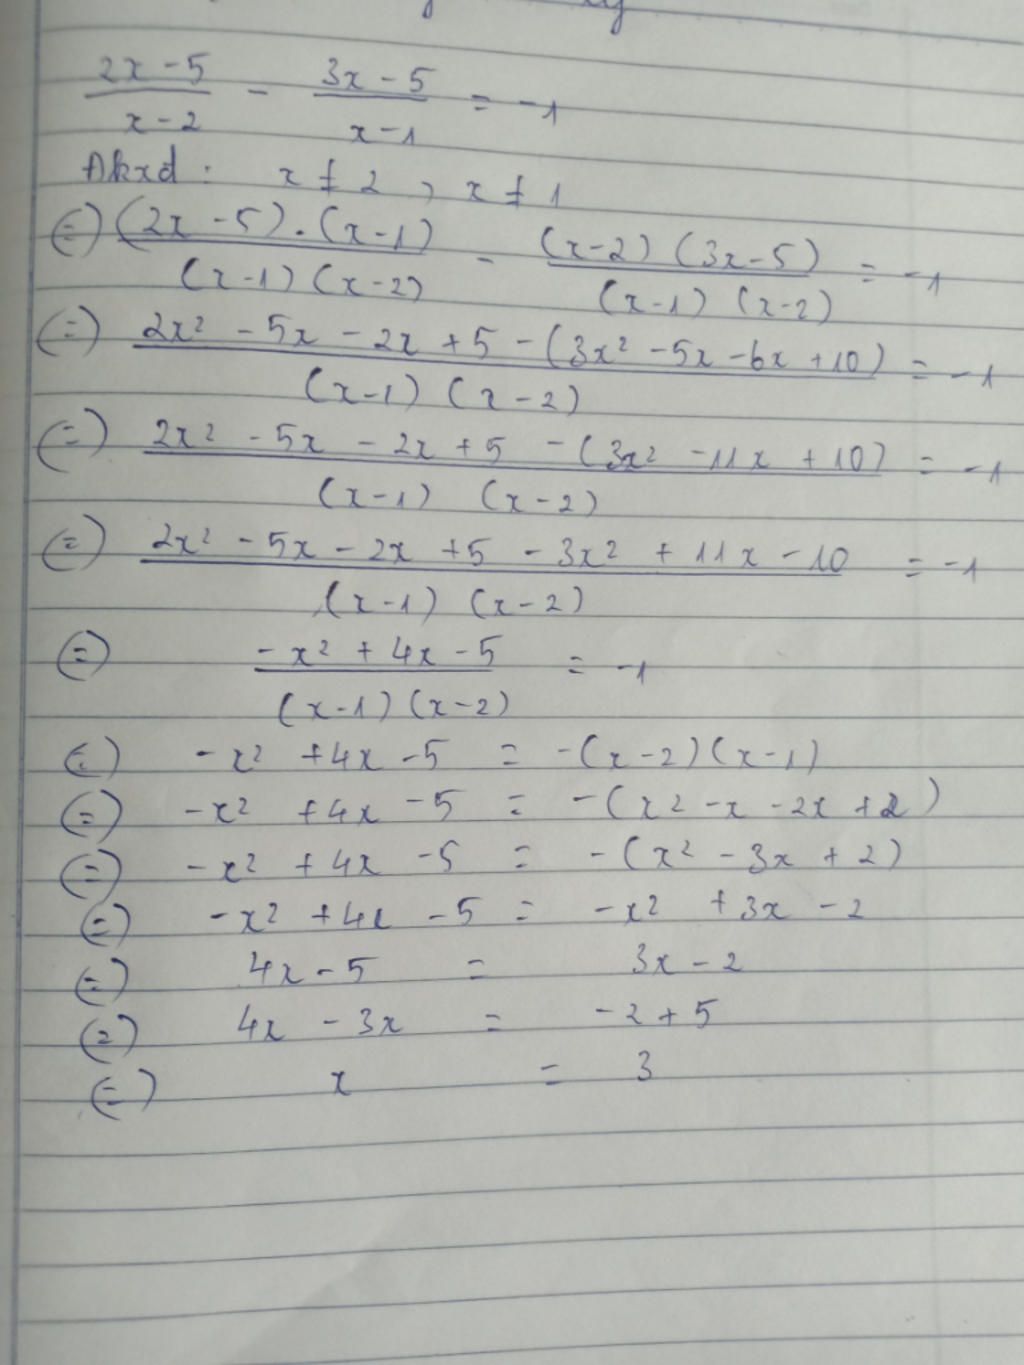 (2x - 5)/(x - 2) - (3x - 5)/(x - 1) = -1
Đkxđ : x ≠ 2 , x ≠ 1
(=) ((2x - 5) . (x - 1))/((x - 1) (x - 2)) - ((x - 2) (3x - 5))/((x - 1) (x - 2)) = -1
(=) (2x² - 5x - 2x + 5 - (3x² - 5x - 6x + 10))/((x - 1) (x - 2)) = -1
(=) (2x² - 5x - 2x + 5 - (3x² - 11x + 10))/((x - 1) (x - 2)) = -1
(=) (2x² - 5x - 2x + 5 - 3x² + 11x - 10)/((x - 1) (x - 2)) = -1
(=) (-x² + 4x - 5)/((x - 1) (x - 2)) = -1
(=) -x² + 4x - 5 = -(x - 2) (x - 1)
(=) -x² + 4x - 5 = -(x² - x - 2x + 2)
(=) -x² + 4x - 5 = -(x² - 3x + 2)
(=) -x² + 4x - 5 = -x² + 3x - 2
(=) 4x - 5 = 3x - 2
(=) 4x - 3x = -2 + 5
(=) x = 3